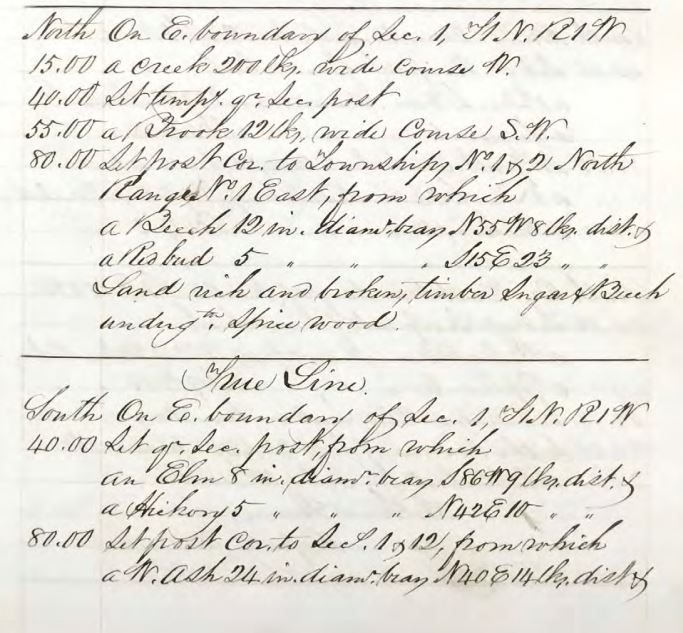 North On E. boundary of Sec. 1, T1N. R1W
15.00 a creek 200 lks. wide Course W.
40.00 Set tempy. qr. Sec. post
55.00 a Brook 12 lks. wide Course S.W.
80.00 Set post Cor. to Townships No. 1 & 2 North
Range No. 1 East, from which
a Beech 12 in. diamr. bears N55W 8 lks. dist. &
a Redbud 5 " " " S15E 23 " "
Land rich and broken, timber Sugar & Beech
undrgth. Spice wood.
True Line.
South On E. boundary of Sec. 1, T1N. R1W
40.00 Set qr. Sec. post, from which
an Elm 8 in. diamr. bears S86W 9 lks. dist. &
a Hickory 5 " " " N42E 10 " "
80.00 Set post Cor. to Secs. 1 & 12, from which
a W. Ash 24 in. diamr. bears N40E 14 lks. dist &